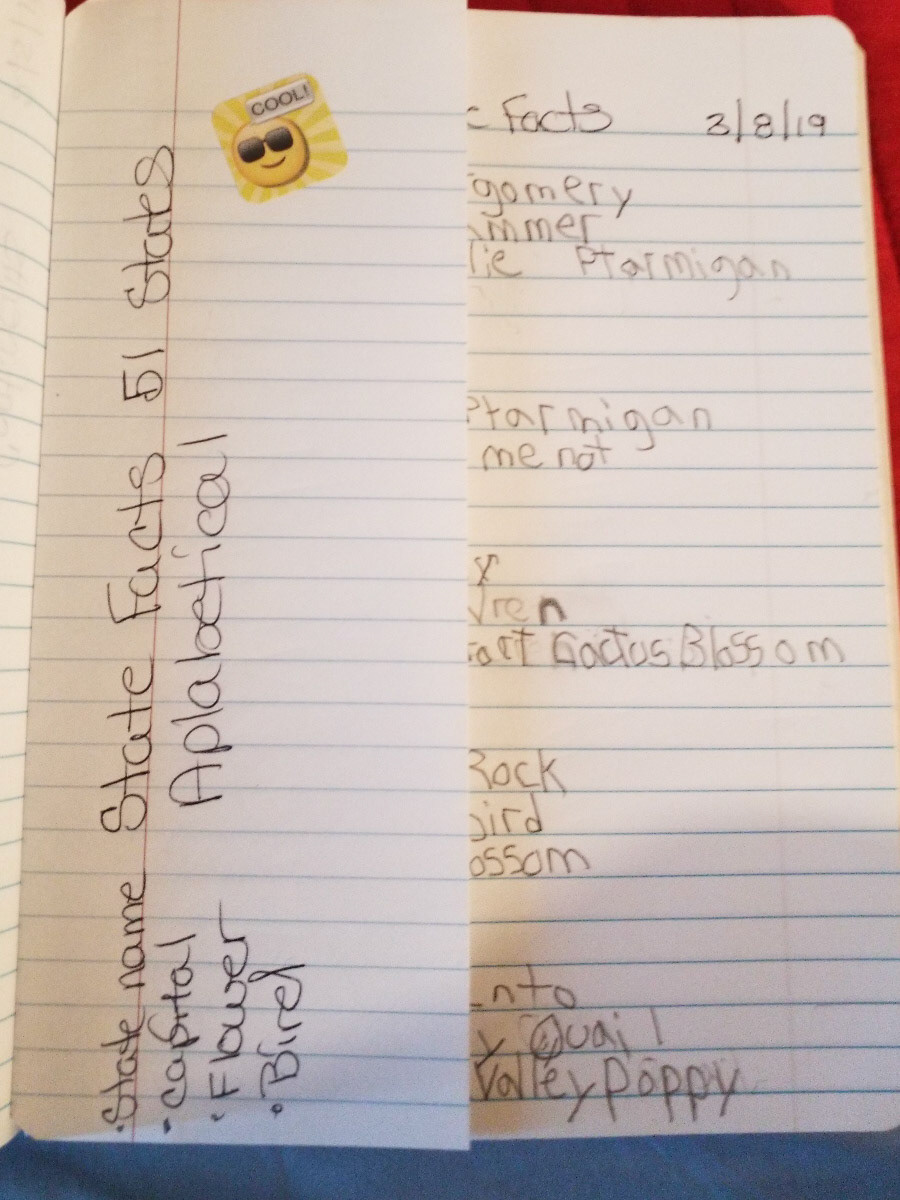 ·State name State Facts 51 States
·Capital Aplabetical
·Flower
·Bird
COOL!
Facts 3/8/19
gomery
mmer
Ptarmigan
Ptarmigan
me not
x
ren
Gactus Blossom
Rock
bird
ossom
nto
y Quail
Valley poppy